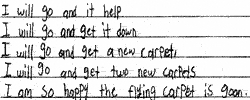 I will go and it help
I will go and get it down
I will go and get a new carpet,
I will go and get two new carpets
I am so happy the flying carpet is goon.